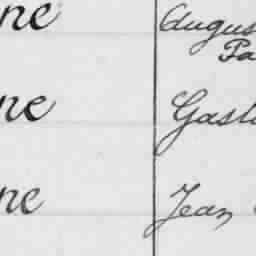 ne
Augus
Pa
ne
Gast
ne
Jean